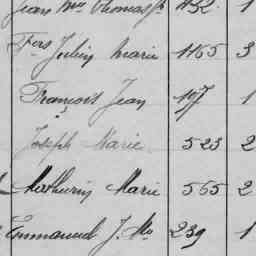 Jean Mie Thomas fs 1152 1
Fcs Julien Marie 1165 3
François Jean 197 1
Joseph Marie 523 2
Mathurin Marie 555 2
Emmanuel J. Mie 239 1